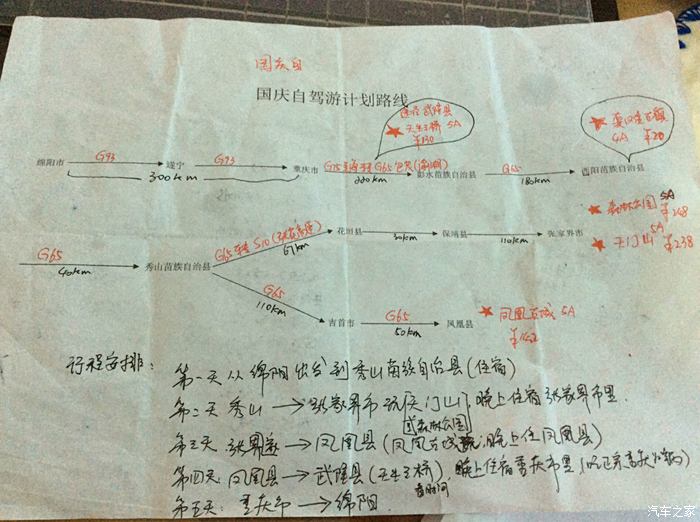 国庆自
国庆自驾游计划路线
途径武隆县
★天生三桥 5A
¥130
4A ¥20
绵阳市 G93 遂宁 G93 重庆市 G65 彭水苗族自治县 G65 酉阳苗族自治县
300km 220km 180km
森林公园 5A
¥248
G65 秀山苗族自治县 G65转 S10 花垣县 保靖县 张家界市
40km 67km 30km 110km
★天门山 5A ¥238
G65
110km
吉首市 G65 凤凰县
50km
★凤凰古城 5A
行程安排:
第一天 从绵阳出发到秀山苗族自治县(住宿)
第二天 秀山 → 张家界市玩[天门山] 晚上住宿张家界市里.
或森林公园
第三天 张家界 → 凤凰县(凤凰古城 晚上住凤凰县)
第四天: 凤凰县 → 武隆县(天生三桥), 晚上住宿重庆市里
看时间
第五天: 重庆市 → 绵阳.
汽车之家